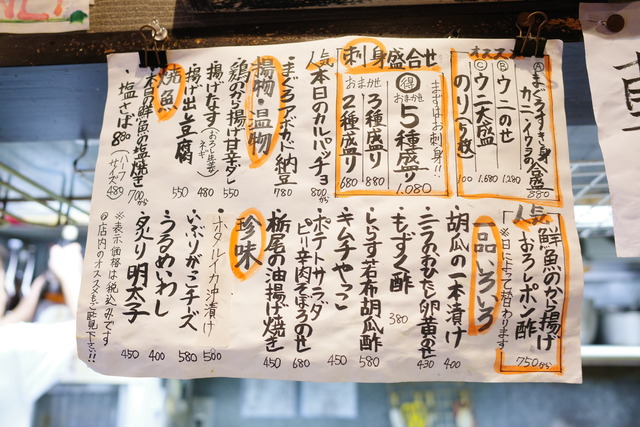 オススメ
Ⓐまぐろすき身
カニ・イクラの合盛 880
Ⓑウニのせ 1,280
Ⓒウニ大盛 1,680
のり(5枚) 100
刺身盛合せ
まずはお刺身!!
得 おまかせ 5種盛り 1,080
おまかせ
3種盛り 880
2種盛り 680
人気 本日のカルパッチョ 800から
まぐろアボカド納豆 780
揚物・温物
鶏のから揚げ甘辛ダレ 550
揚げなす(おろし生姜 ネギ) 480
揚げ出し豆腐 550
焼魚
・本日の鮮魚の塩焼き 700から
・塩さば 880 ハーフサイズ 480
人気
鮮魚のから揚げ
おろしポン酢
※日によって替わります
750から
一品いろいろ
胡瓜の一本漬け 400
ニラのおひたし卵黄のせ 430
もずく酢 380
しらす若布胡瓜酢 580
キムチやっこ 450
ポテトサラダ
ピリ辛肉そぼろのせ 680
栃尾の油揚げ焼き 450
珍味
ホタルイカ沖漬け 500
いぶりがっこチーズ 580
うるめいわし 400
炙り明太子 450
※表示価格は税込みです
店内のオススメもご覧下さい!!